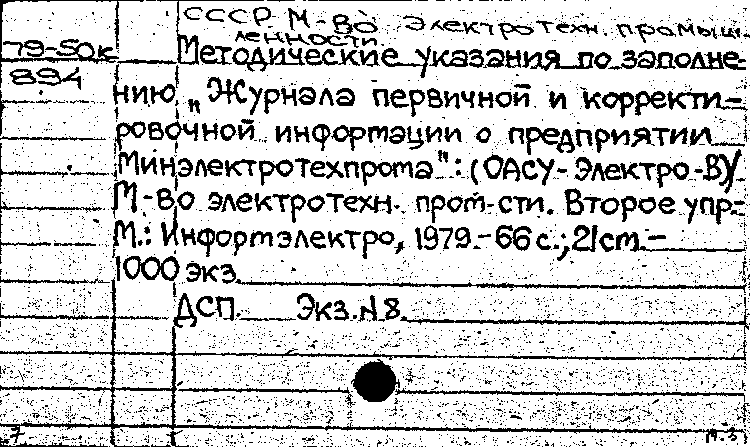 СССР М-во Электротехн. промыш-
ленности
79-50к
894
Методические указания по заполне-
нию „Журнала первичной и корректи-
ровочной информации о предприятии
Минэлектротехпрома": (ОАСУ-Электро-ВУ)
М-во электротехн. пром-сти. Второе упр.
М.: Информэлектро, 1979.-66 с.; 21 см.-
1000 экз.
ДСП. Экз.№8.
7